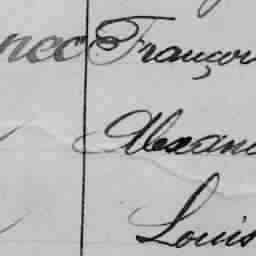 nec François
Alexand
Louis